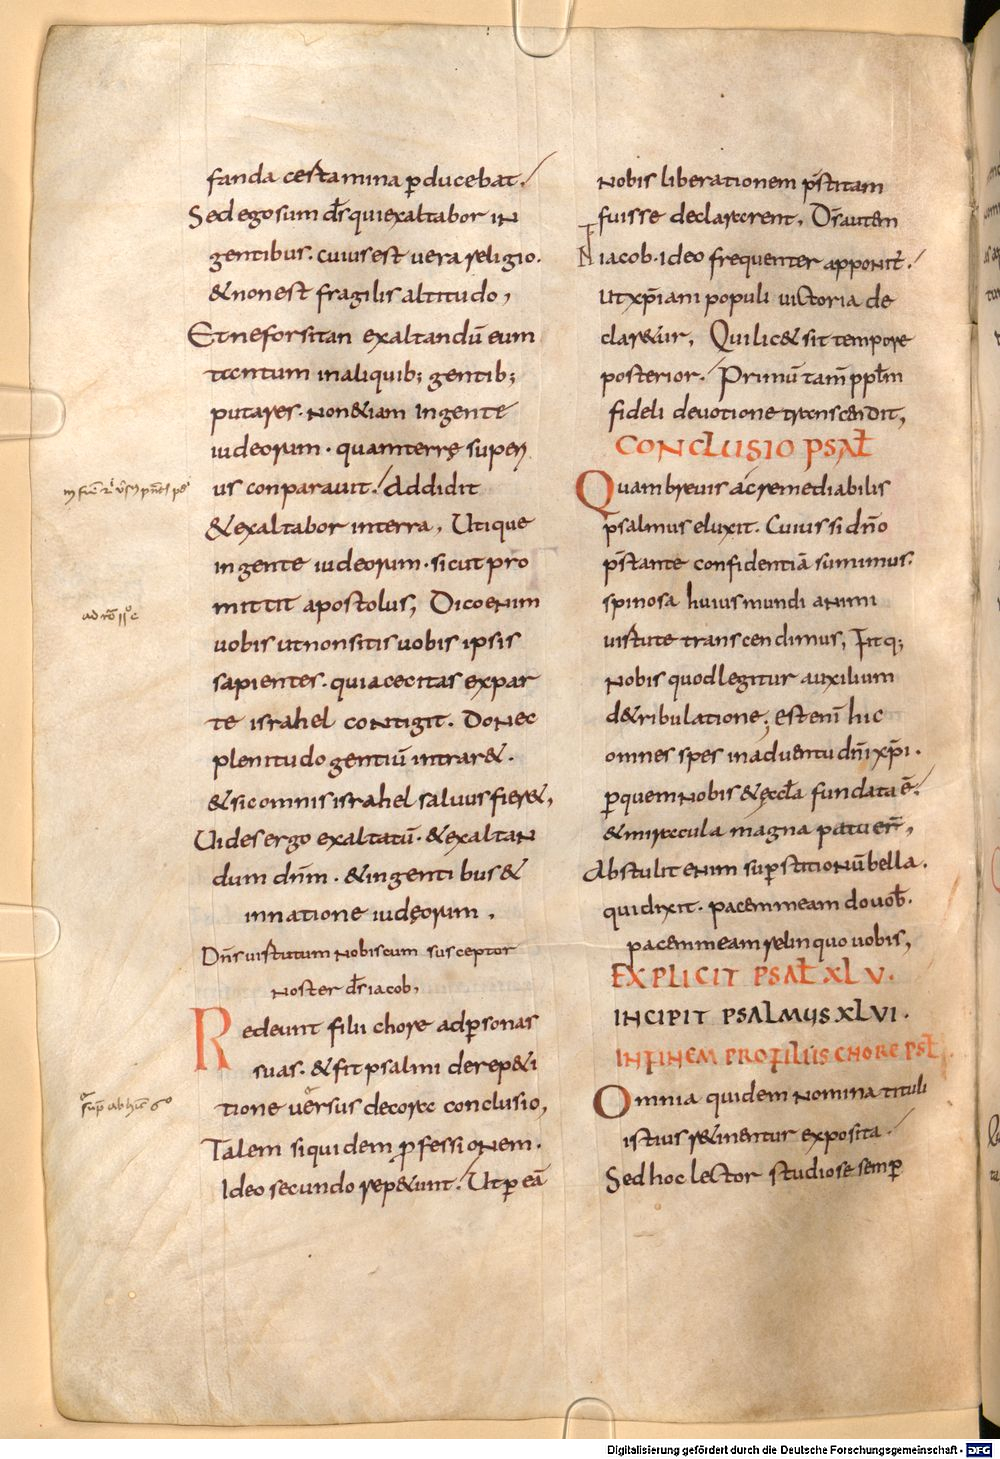 fanda certamina p̱ducebat.
Sed ego sum d̄s qui exaltabor in
gentibus. cuius est uera religio.
& non est fragilis altitudo,
Et ne forsitan exaltandū eum
tantum in aliquib; gentib;
putares. non &iam in gente
iudeorum. quam terrę super
ius conparauit. Addidit
& exaltabor in terra, Utique
in gente iudeorum. sicut pro
mittit apostolus, Dico enim
uobis ut non sitis uobis ipsis
sapientes. quia cecitas ex par
te israhel contigit. Donec
plenitudo gentiū intrar&.
& sic omnis israhel saluus fier&,
Uides ergo exaltatū. & exaltan
dum dn̄m. & in gentibus &
in natione iudęorum,
Dn̄s uirtutum nobiscum susceptor
noster d̄s iacob,
Redeunt filii chore ad p̱sonas
suas. & fit psalmi de rep&i
tione uersus decora conclusio,
Talem siquidem p̱fessionem.
Ideo secundo rep&unt. Ut p̱ eā
ad ro
sup̄
nobis liberationem p̄stitam
fuisse declararent, D̄s autem
iacob. ideo frequenter apponit̄.
Ut xp̄iani populi uictoria de
clar&ur, Qui lic& sit tempore
posterior. Primū tam̄ ppl̄m
fideli deuotione transcendit,
CONCLUSIO PSAL̄
Quam breuis ac remediabilis
psalmus eluxit. Cuius si dn̄o
p̄stante confidentiā sumimus.
spinosa huius mundi animi
uirtute transcendimus, Fit q;
nobis quod legitur auxilium
d& ribulatione; Est eni hic
omnes spes in aduentu dn̄i xp̄i.
p̱ quem nobis & ęccl̄a fundata ē.
& miracula magna patuer̄,
Abstulit enim sup̱stitionū bella.
qui dixit. pacem meam do uob̄.
pacem meam relinquo uobis,
EXPLICIT PSAL̄ XLV.
INCIPIT PSALMUS XLVI.
IN FINEM PRO FILIIS CHORE PSL̄.
Omnia quidem nomina tituli
istius r&inentur exposita.
Sed hoc lector studiose semp̱
Digitalisierung gefördert durch die Deutsche Forschungsgemeinschaft - DFG